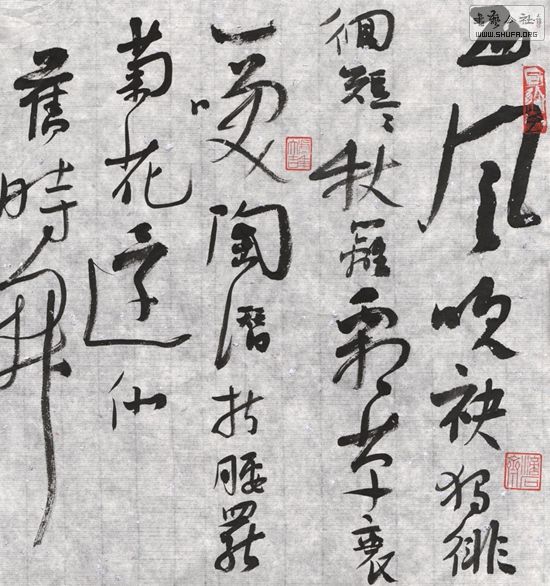 西風吹袂獨徘
徊短々秋籬霜草衰
一咲陶潛折腰罷
菊花還似
舊時開
書藝公社
WWW.SHUFA.ORG